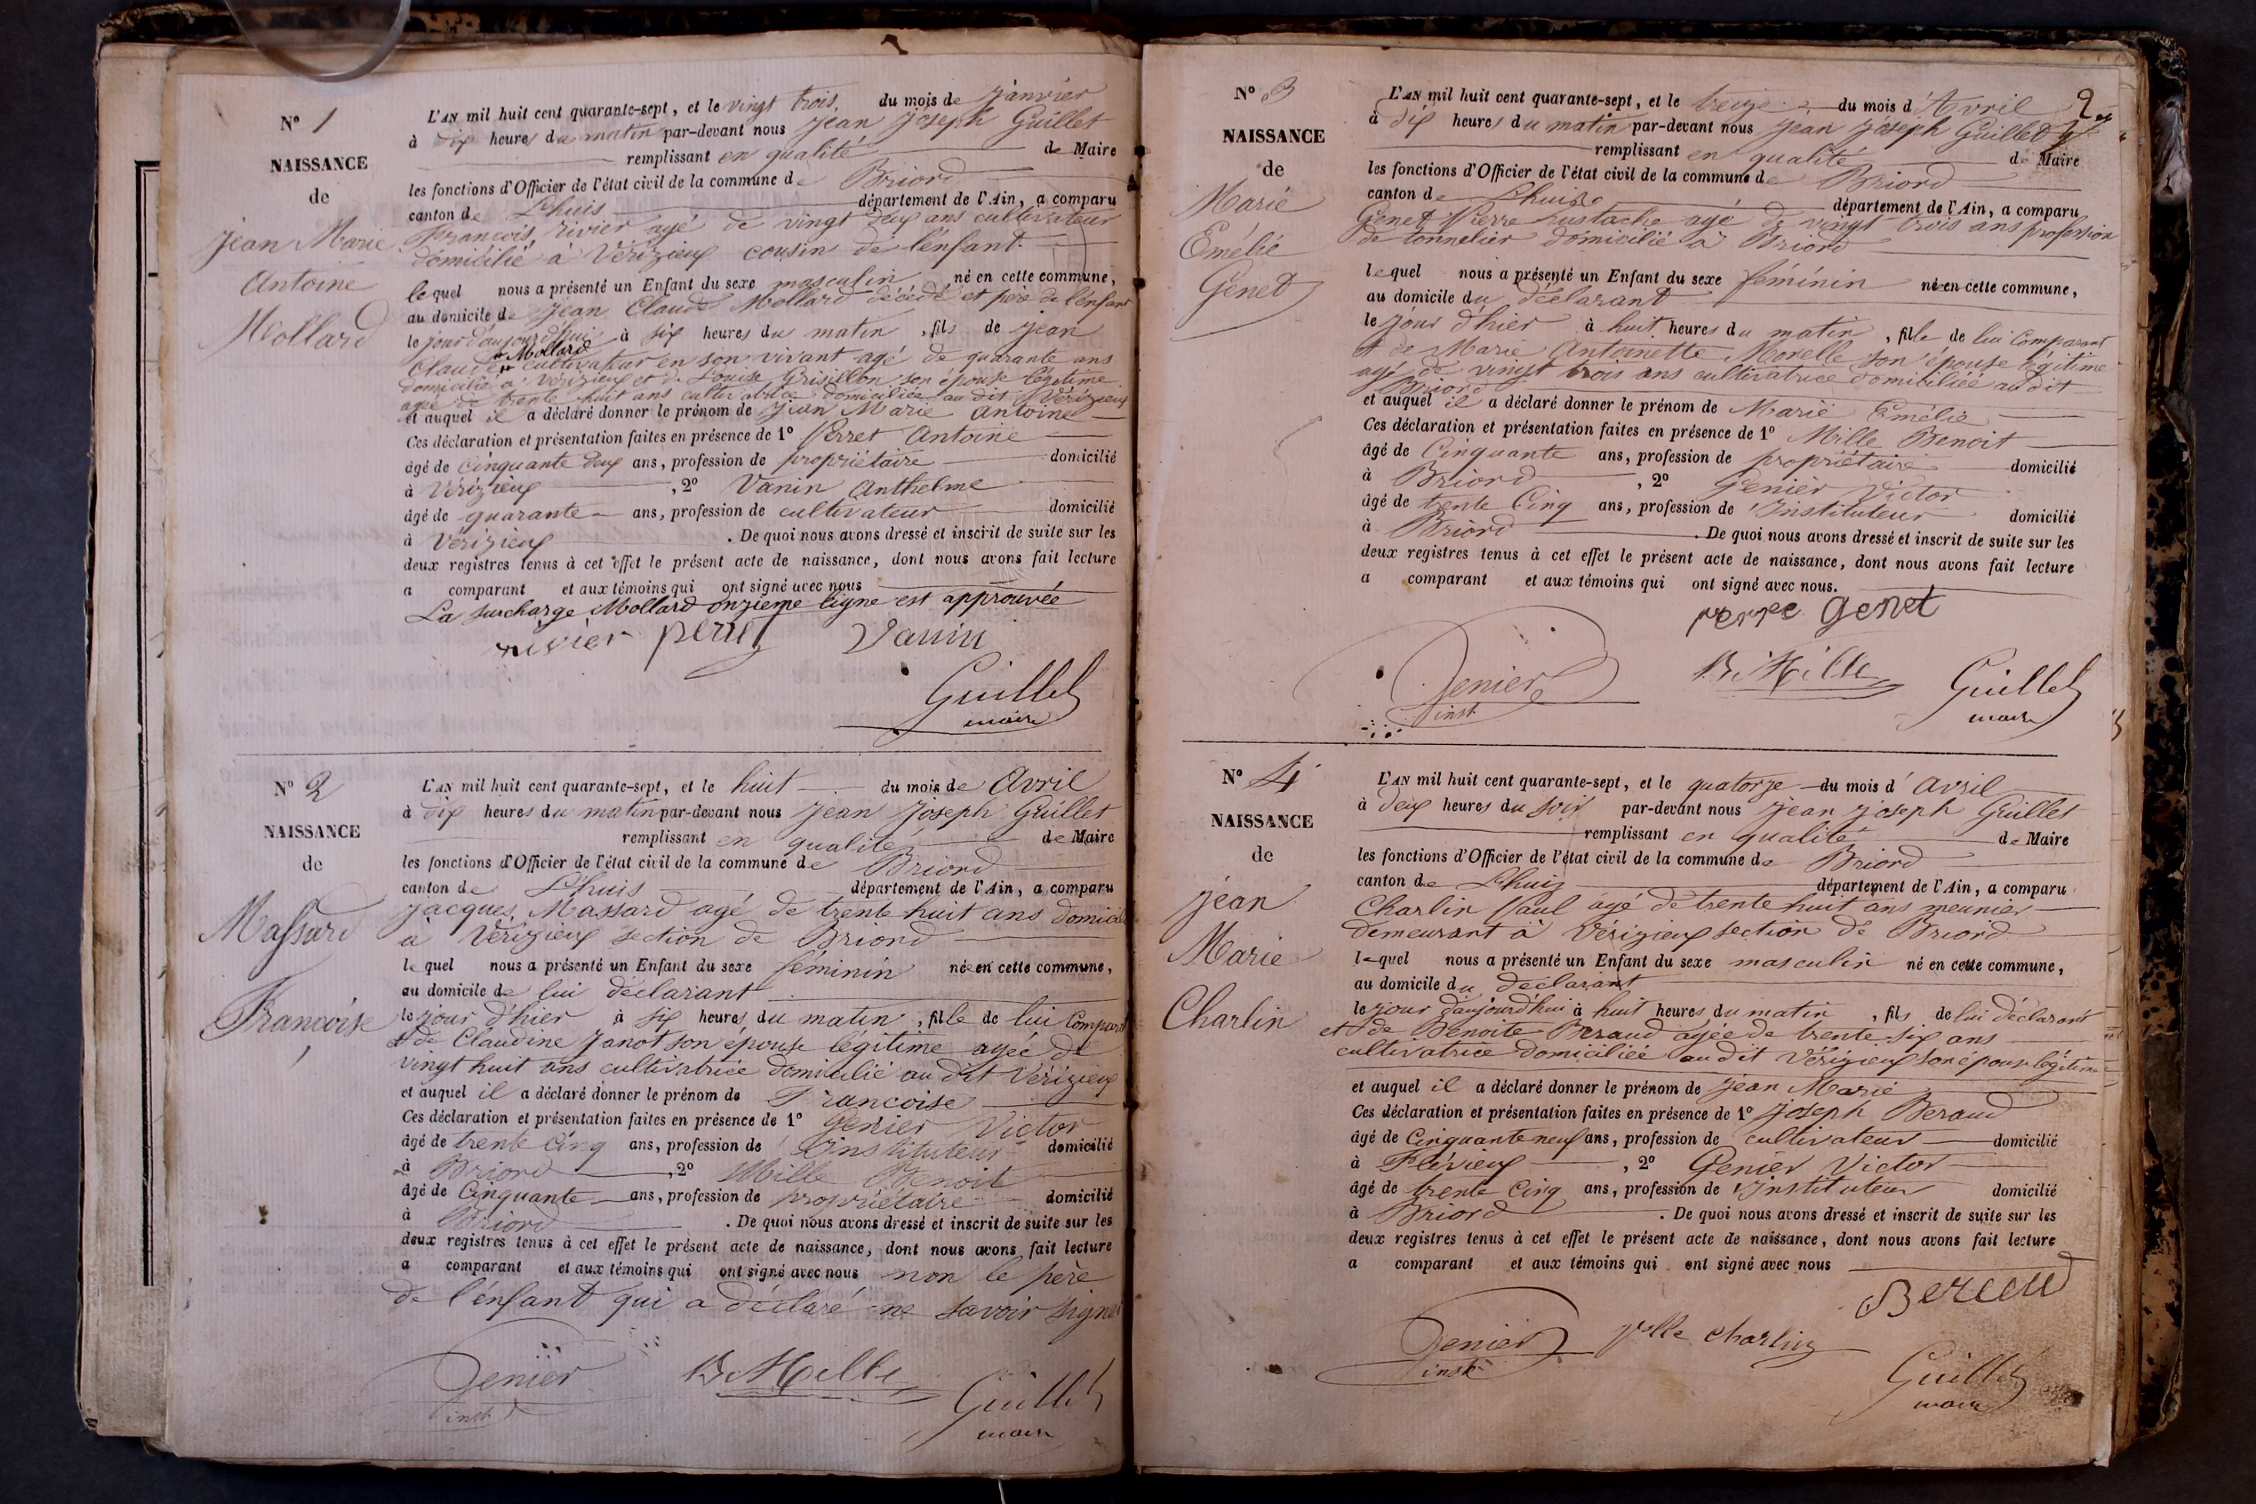 N° 1
NAISSANCE
de
Jean Marie
Antoine
Mollard
L'AN mil huit cent quarante-sept, et le vingt trois. du mois de Janvier
à dix heures du matin par-devant nous Jean Joseph Guillet
remplissant en qualité de Maire
les fonctions d'Officier de l'état civil de la commune de Briord
canton de Lhuis département de l'Ain, a comparu
François rivier agé de vingt deux ans cultivateur
domicilié à Vérizieux cousin de l'enfant.
lequel nous a présenté un Enfant du sexe masculin né en cette commune,
au domicile de Jean Claude Mollard décédé et père de l'enfant
le jour d'aujourd'hui à six heures du matin, fils de Jean
Claude Mollard cultivateur en son vivant agé de quarante ans
domicilié à Vérizieux et de Louise Grisillon son épouse légitime
agée de trente huit ans cultivatrice domiciliée au dit Vérizieux
et auquel il a déclaré donner le prénom de Jean Marie Antoine
Ces déclaration et présentation faites en présence de 1° Perret Antoine
âgé de Cinquante deux ans, profession de propriétaire domicilié
à Vérizieux, 2° Vanin Anthelme
âgé de quarante ans, profession de cultivateur domicilié
à Vérizieux. De quoi nous avons dressé et inscrit de suite sur les
deux registres tenus à cet effet le présent acte de naissance, dont nous avons fait lecture
a comparant et aux témoins qui ont signé avec nous
La surcharge Mollard onzieme ligne est approuvée
rivier perret Vanin
Guillet
maire
N° 2
NAISSANCE
de
Massard
Françoise
L'AN mil huit cent quarante-sept, et le huit du mois de Avril
à dix heures du matin par-devant nous Jean Joseph Guillet
remplissant en qualité de Maire
les fonctions d'Officier de l'état civil de la commune de Briord
canton de Lhuis département de l'Ain, a comparu
Jacques Massard agé de trente huit ans domicilié
à Vérizieux section de Briord
lequel nous a présenté un Enfant du sexe féminin né en cette commune,
au domicile de lui déclarant
le jour d'hier à six heures du matin, fille de lui Comparant
et de Claudine Janot son épouse légitime agée de
vingt huit ans cultivatrice domicilié au dit Vérizieux
et auquel il a déclaré donner le prénom de Francoise
Ces déclaration et présentation faites en présence de 1° Genier Victor
âgé de trente Cinq ans, profession de instituteur domicilié
à Briord, 2° Mille Benoit
âgé de Cinquante ans, profession de propriétaire domicilié
à Briord. De quoi nous avons dressé et inscrit de suite sur les
deux registres tenus à cet effet le présent acte de naissance, dont nous avons fait lecture
a comparant et aux témoins qui ont signé avec nous non le père
de l'enfant qui a déclaré ne savoir signer
Genier B Mille
inst. Guillet
maire
N° 3
NAISSANCE
de
Marie
Emélie
Genet
2
L'AN mil huit cent quarante-sept, et le treize du mois d'Avril
à dix heures du matin par-devant nous Jean Joseph Guillet
remplissant en qualité de Maire
les fonctions d'Officier de l'état civil de la commune de Briord
canton de Lhuis département de l'Ain, a comparu
Genet Pierre Eustache agé de vingt trois ans profession
de tonnelier domicilié à Briord
lequel nous a présenté un Enfant du sexe féminin né en cette commune,
au domicile du déclarant
le jour d'hier à huit heures du matin, fille de lui Comparant
et de Marie Antoinette Morelle son épouse légitime
agé de vingt trois ans cultivatrice domiciliée au dit
Briord
et auquel il a déclaré donner le prénom de Marie Emélie
Ces déclaration et présentation faites en présence de 1° Mille Benoit
âgé de Cinquante ans, profession de propriétaire domicilié
à Briord, 2° Genier Victor
âgé de trente Cinq ans, profession de Instituteur domicilié
à Briord. De quoi nous avons dressé et inscrit de suite sur les
deux registres tenus à cet effet le présent acte de naissance, dont nous avons fait lecture
a comparant et aux témoins qui ont signé avec nous.
Genet
Genier B Mille Guillet
inst. maire
N° 4
NAISSANCE
de
Jean
Marie
Charlin
L'AN mil huit cent quarante-sept, et le quatorze du mois d'avril
à deux heures du soir par-devant nous Jean Joseph Guillet
remplissant en qualité de Maire
les fonctions d'Officier de l'état civil de la commune de Briord
canton de Lhuis département de l'Ain, a comparu
Charlin Paul agé de trente huit ans meunier
demeurant à Vérizieux section de Briord
lequel nous a présenté un Enfant du sexe masculin né en cette commune,
au domicile du déclarant
le jour d'aujourd'hui à huit heures du matin, fils de lui déclarant
et de Benoite Beraud agée de trente six ans
cultivatrice domiciliée au dit Vérizieux son épouse légitime
et auquel il a déclaré donner le prénom de Jean Marie
Ces déclaration et présentation faites en présence de 1° Joseph Beraud
âgé de Cinquante neuf ans, profession de cultivateur domicilié
à Flévieux, 2° Genier Victor
âgé de trente Cinq ans, profession de instituteur domicilié
à Briord. De quoi nous avons dressé et inscrit de suite sur les
deux registres tenus à cet effet le présent acte de naissance, dont nous avons fait lecture
a comparant et aux témoins qui ont signé avec nous
Beraud
Genier Charlin
inst. Guillet
maire